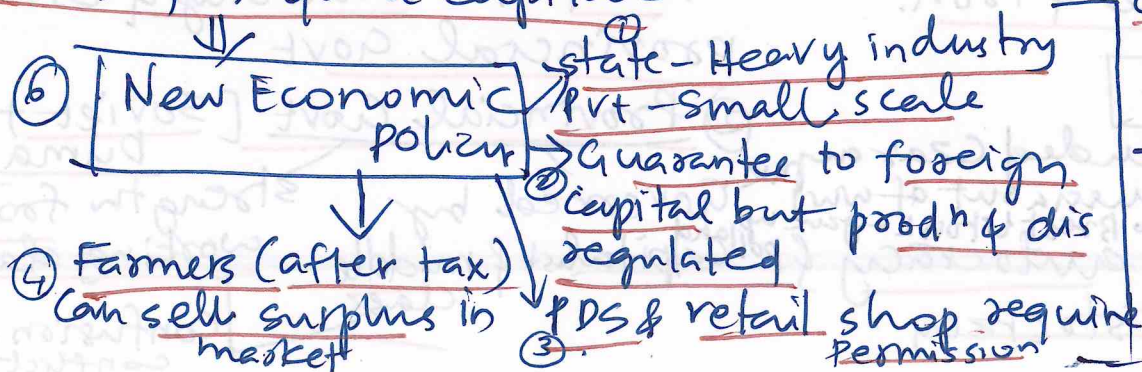 ⑥ New Economic
Policy
①
State - Heavy industry
Pvt - Small scale
② Guarantee to foreign
capital but prodⁿ & dis
regulated
③ PDS & retail shop require
Permission
④ Farmers (after tax)
Can sell surplus in
market